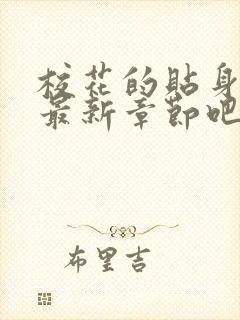 校花的贴身
最新章节吧
布里吉